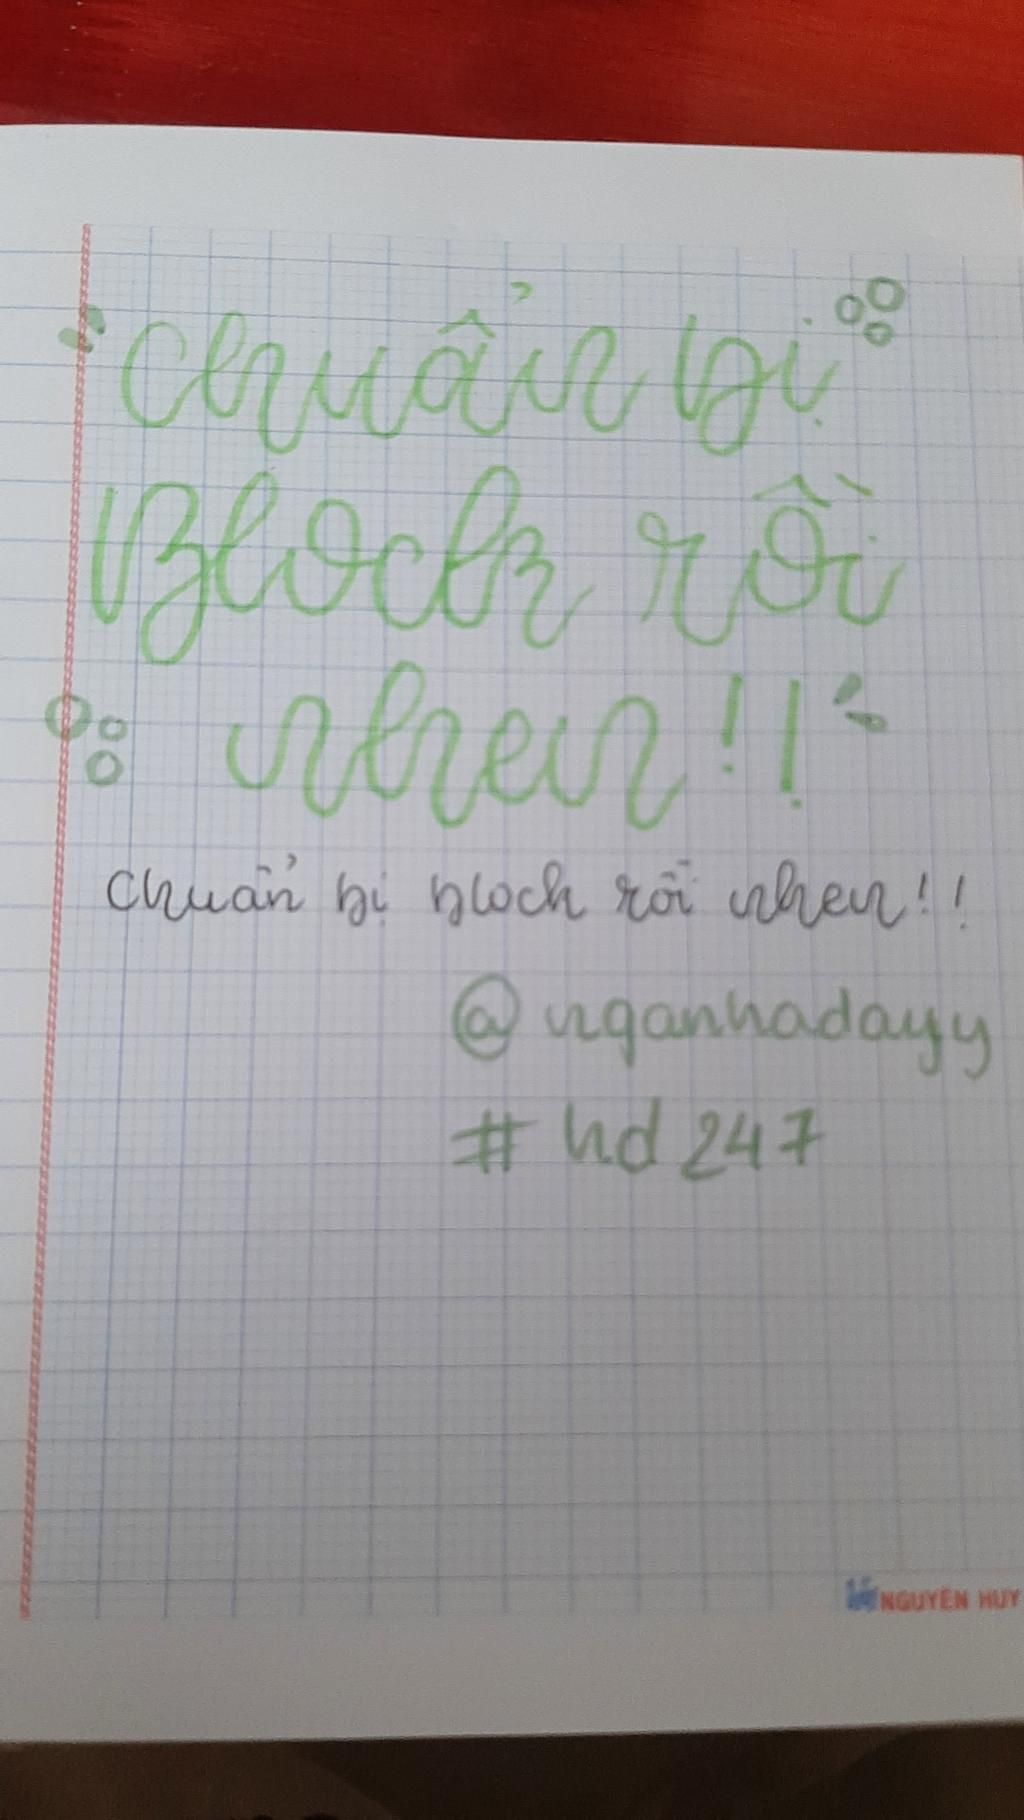 Chuẩn bị
Block rồi
nhen!!
Chuẩn bị block rồi nhen!!
@nganhadayy
#hd247
NGUYEN HUY